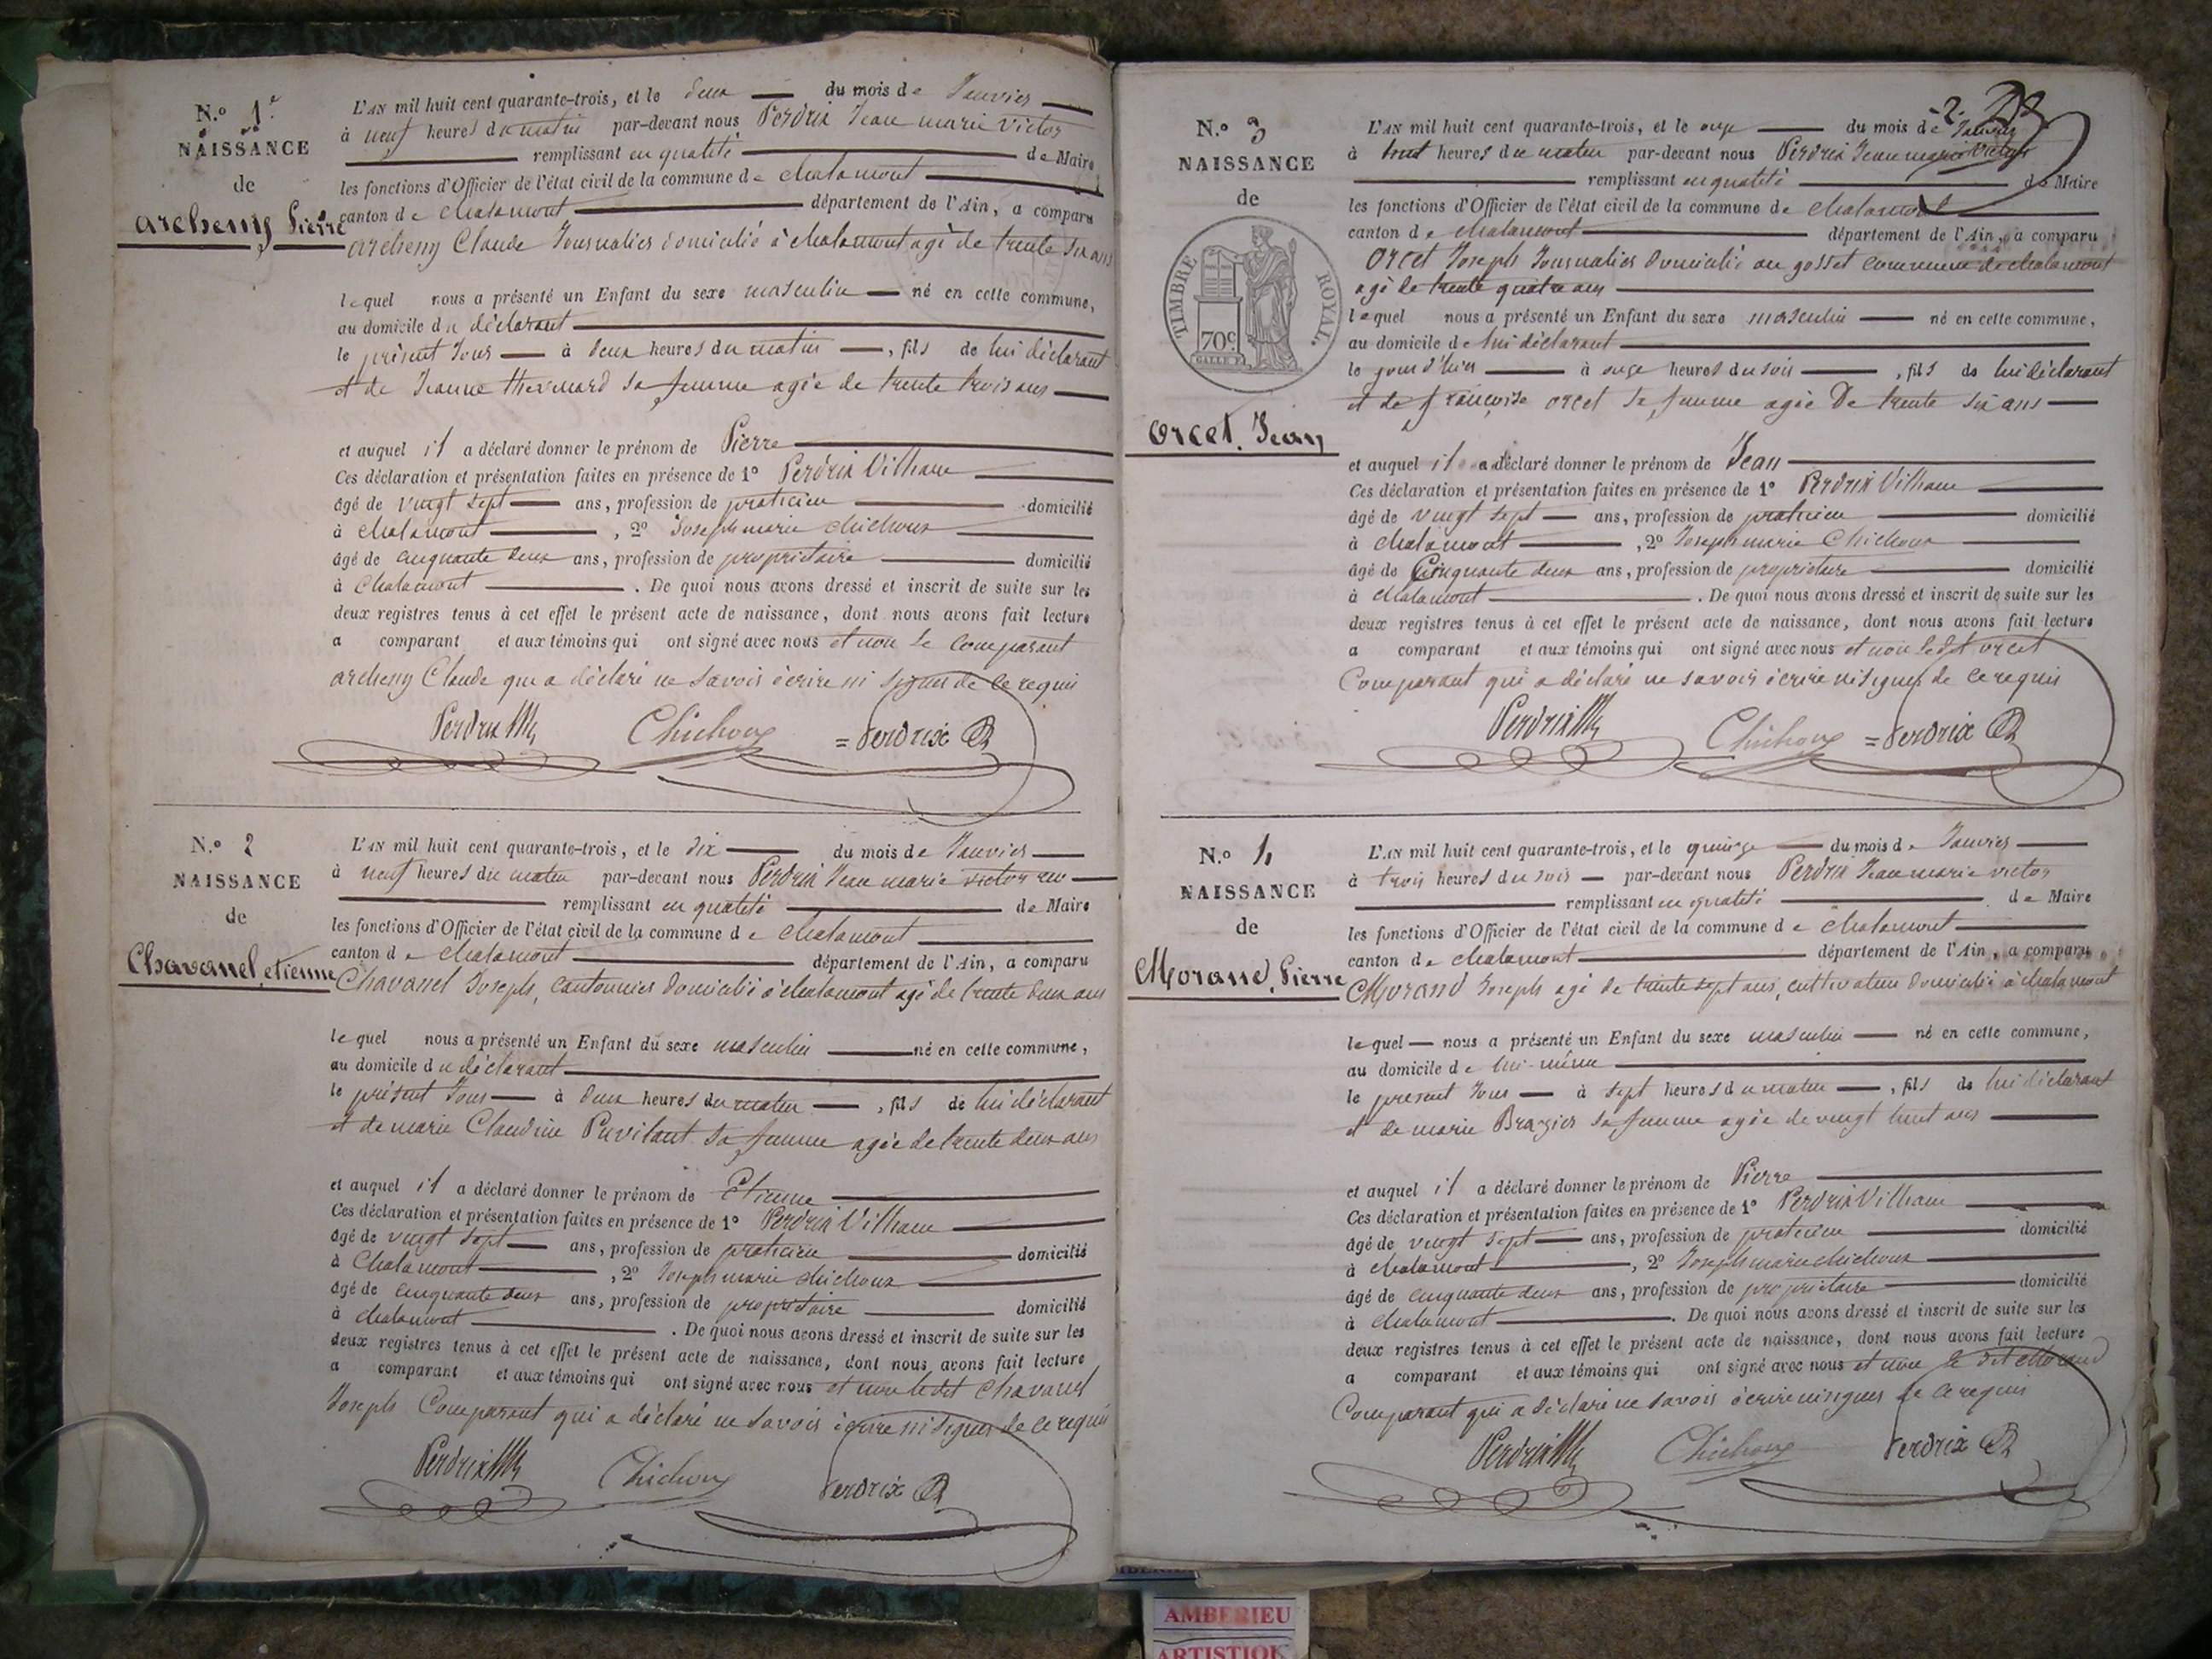 N.° 1.er
NAISSANCE
de
Archeny Pierre
L'AN mil huit cent quarante-trois, et le deux du mois de Janvier
à neuf heures du matin par-devant nous Perdrix Jean marie Victor
remplissant en qualité de Maire
les fonctions d'Officier de l'état civil de la commune de chalamont
canton de chalamont département de l'Ain, a comparu
archeny Claude Journalier domicilié à chalamont agé de trente six ans
lequel nous a présenté un Enfant du sexe masculin né en cette commune,
au domicile du déclarant
le présent Jour à deux heures du matin, fils de lui déclarant
et de Jeanne thevenard sa femme agée de trente trois ans
et auquel il a déclaré donner le prénom de Pierre
Ces déclaration et présentation faites en présence de 1° Perdrix Villiame
âgé de vingt sept ans, profession de praticien domicilié
à chalamont, 2° Joseph marie chichoux
âgé de cinquante deux ans, profession de propriétaire domicilié
à chalamont. De quoi nous avons dressé et inscrit de suite sur les
deux registres tenus à cet effet le présent acte de naissance, dont nous avons fait lecture
a comparant et aux témoins qui ont signé avec nous et non le comparant
archeny Claude qui a déclaré ne savoir écrire ni signer de ce requis
Perdrix Chichoux =Perdrix
N.° 2
NAISSANCE
de
Chavanel etienne
L'AN mil huit cent quarante-trois, et le dix du mois de Janvier
à neuf heures du matin par-devant nous Perdrix Jean marie victor
remplissant en qualité de Maire
les fonctions d'Officier de l'état civil de la commune de chalamont
canton de chalamont département de l'Ain, a comparu
Chavanel Joseph, cantonnier domicilié à chalamont agé de trente deux ans
lequel nous a présenté un Enfant du sexe masculin né en cette commune,
au domicile du déclarant
le présent Jour à deux heures du matin, fils de lui déclarant
et de marie Claudine Puvilant sa femme agée de trente deux ans
et auquel il a déclaré donner le prénom de Etienne
Ces déclaration et présentation faites en présence de 1° Perdrix Villiame
âgé de vingt sept ans, profession de praticien domicilié
à Chalamont, 2° Joseph marie chichoux
âgé de cinquante deux ans, profession de propriétaire domicilié
à chalamont. De quoi nous avons dressé et inscrit de suite sur les
deux registres tenus à cet effet le présent acte de naissance, dont nous avons fait lecture
a comparant et aux témoins qui ont signé avec nous et non ledit Chavanel
Joseph Comparant qui a déclaré ne savoir écrire ni signer de ce requis
Perdrix Chichoux Perdrix
N.° 3
NAISSANCE
de
TIMBRE ROYAL.
70c
Orcet, Jean
L'AN mil huit cent quarante-trois, et le onze du mois de Janvier
à huit heures du matin par-devant nous Perdrix Jean marie Victor
remplissant en qualité de Maire
les fonctions d'Officier de l'état civil de la commune de chalamont
canton de chalamont département de l'Ain, a comparu
Orcet Joseph Journalier domicilié au gosset commune de chalamont
agé de trente quatre ans
lequel nous a présenté un Enfant du sexe masculin né en cette commune,
au domicile de lui déclarant
le jour d'hier à onze heures du soir, fils de lui déclarant
et de françoise orcet sa femme agée De trente six ans
et auquel il a déclaré donner le prénom de Jean
Ces déclaration et présentation faites en présence de 1° Perdrix Villiame
âgé de vingt sept ans, profession de praticien domicilié
à chalamont, 2° Joseph marie Chichoux
âgé de Cinquante deux ans, profession de propriétaire domicilié
à chalamont. De quoi nous avons dressé et inscrit de suite sur les
deux registres tenus à cet effet le présent acte de naissance, dont nous avons fait lecture
a comparant et aux témoins qui ont signé avec nous et non ledit orcet
Comparant qui a déclaré ne savoir écrire ni signer de ce requis
Perdrix Chichoux =Perdrix
N.° 4
NAISSANCE
de
Morand, Pierre
L'AN mil huit cent quarante-trois, et le quinze du mois de Janvier
à trois heures du soir par-devant nous Perdrix Jean marie victor
remplissant en qualité de Maire
les fonctions d'Officier de l'état civil de la commune de chalamont
canton de chalamont département de l'Ain, a comparu
Morand Joseph agé de trente sept ans, cultivateur domicilié à chalamont
lequel nous a présenté un Enfant du sexe masculin né en cette commune,
au domicile de lui-même
le present Jour à sept heures du matin, fils de lui déclarant
et de marie Brazier sa femme agée de vingt huit ans
et auquel il a déclaré donner le prénom de Pierre
Ces déclaration et présentation faites en présence de 1° Perdrix Villiame
âgé de vingt sept ans, profession de praticien domicilié
à chalamont, 2° Joseph marie chichoux
âgé de cinquante deux ans, profession de propriétaire domicilié
à chalamont. De quoi nous avons dressé et inscrit de suite sur les
deux registres tenus à cet effet le présent acte de naissance, dont nous avons fait lecture
a comparant et aux témoins qui ont signé avec nous et non le dit Morand
Comparant qui a déclaré ne savoir écrire ni signer de ce requis
Perdrix Chichoux Perdrix
AMBERIEU
ARTISTIQ